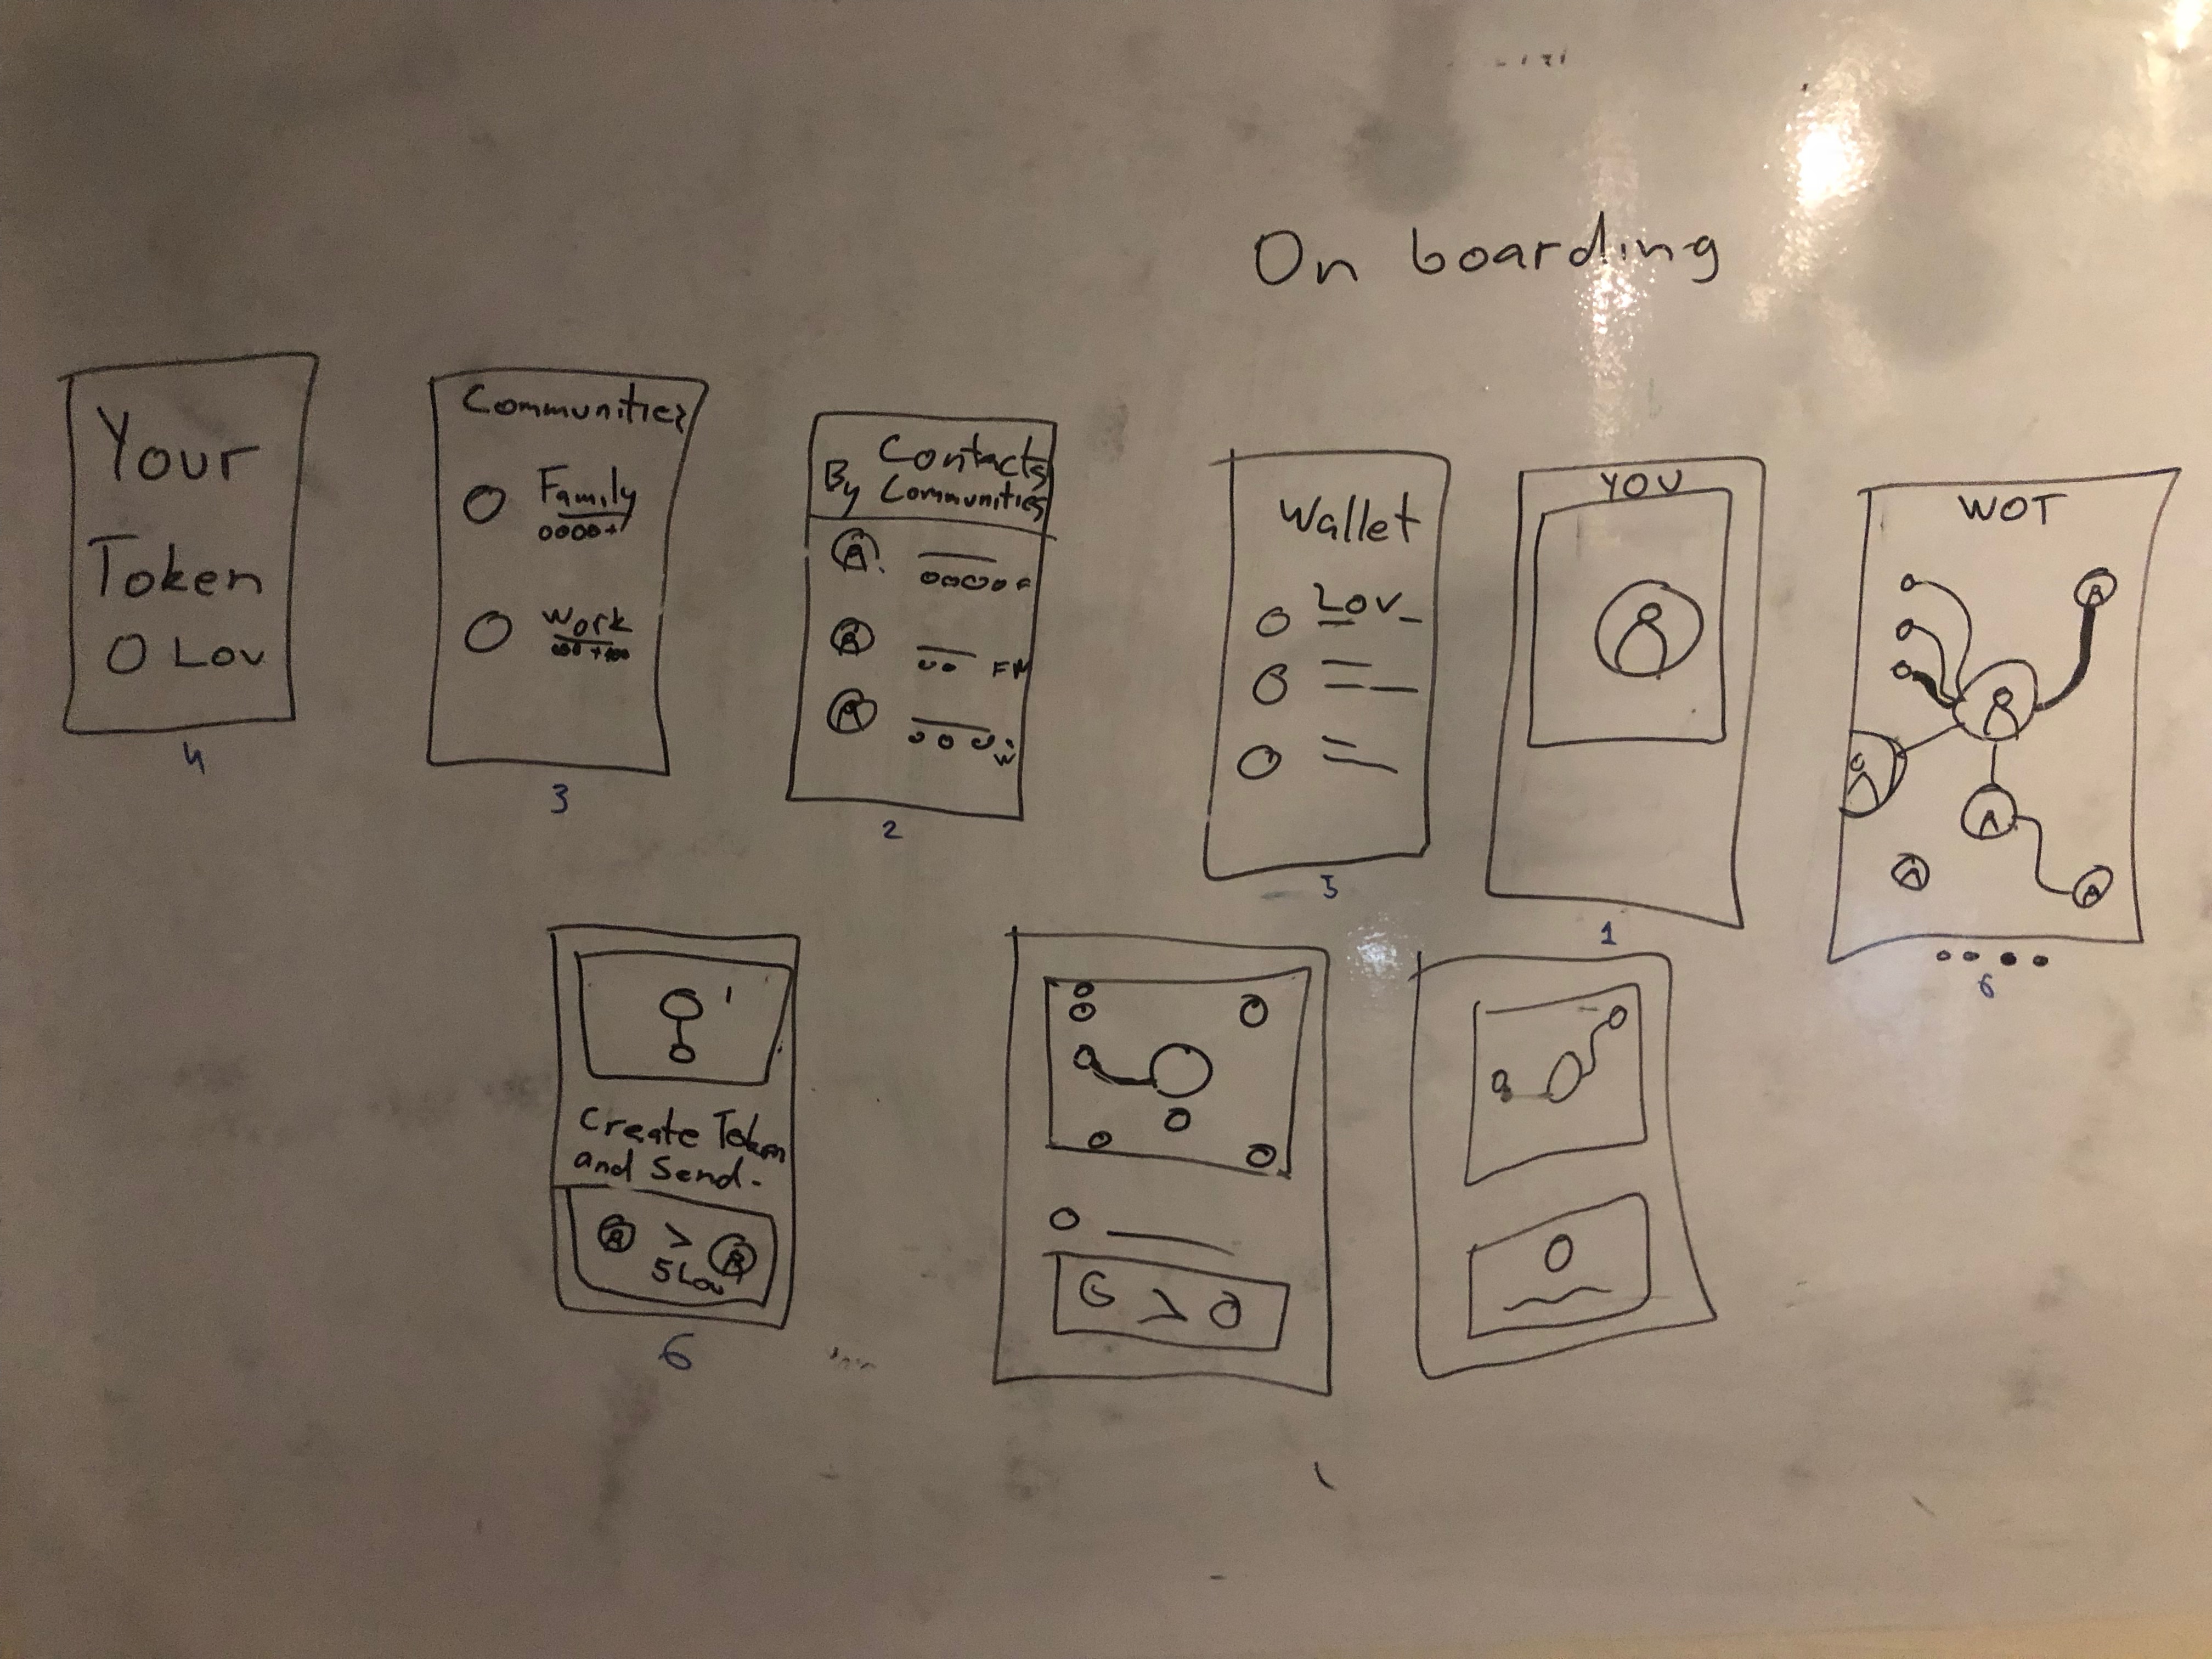 On boarding
Your
Token
O Lov
4
Communities
Family
Work
3
Contacts
By Communities
FM
W
2
Wallet
Lov
5
YOU
1
WOT
6
Create Token
and Send.
>
5 Lov
6
>